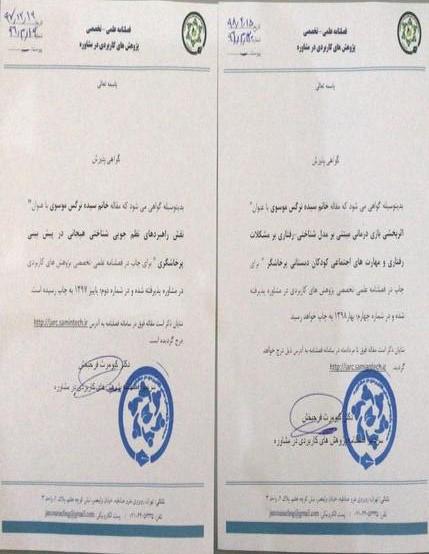 فصلنامه علمی - تخصصی
پژوهش های کاربردی در مشاوره
باسمه تعالی
گواهی پذیرش
بدینوسیله گواهی می شود که مقاله خانم سیده نرگس موسوی با عنوان"
نقش راهبردهای نظم جویی شناختی هیجانی در پیش بینی
پرخاشگری" برای چاپ در فصلنامه علمی تخصصی پژوهش های کاربردی
در مشاوره پذیرفته شده و در شماره دوم؛ پاییز ۱۳۹۷ به چاپ رسیده است.
شایان ذکر است مقاله فوق در سامانه فصلنامه به آدرس http://jarc.samintech.ir
درج گردیده است
دکتر کیومرث فرحبخش
پژوهش های کاربردی در مشاوره
فصلنامه علمی - تخصصی
پژوهش های کاربردی در مشاوره
باسمه تعالی
گواهی پذیرش
بدینوسیله گواهی می شود که مقاله خانم سیده نرگس موسوی با عنوان"
اثربخشی بازی درمانی مبتنی بر مدل شناختی-رفتاری بر مشکلات
رفتاری و مهارت های اجتماعی کودکان دبستانی پرخاشگر" برای
چاپ در فصلنامه علمی تخصصی پژوهش های کاربردی در مشاوره پذیرفته
شده و در شماره چهارم؛ بهار ۱۳۹۸ به چاپ خواهد رسید.
شایان ذکر است مقاله فوق تا مردادماه در سامانه فصلنامه به آدرس ذیل درج خواهد
گردید. http://jarc.samintech.ir
دکتر کیومرث فرحبخش
پژوهش های کاربردی در مشاوره